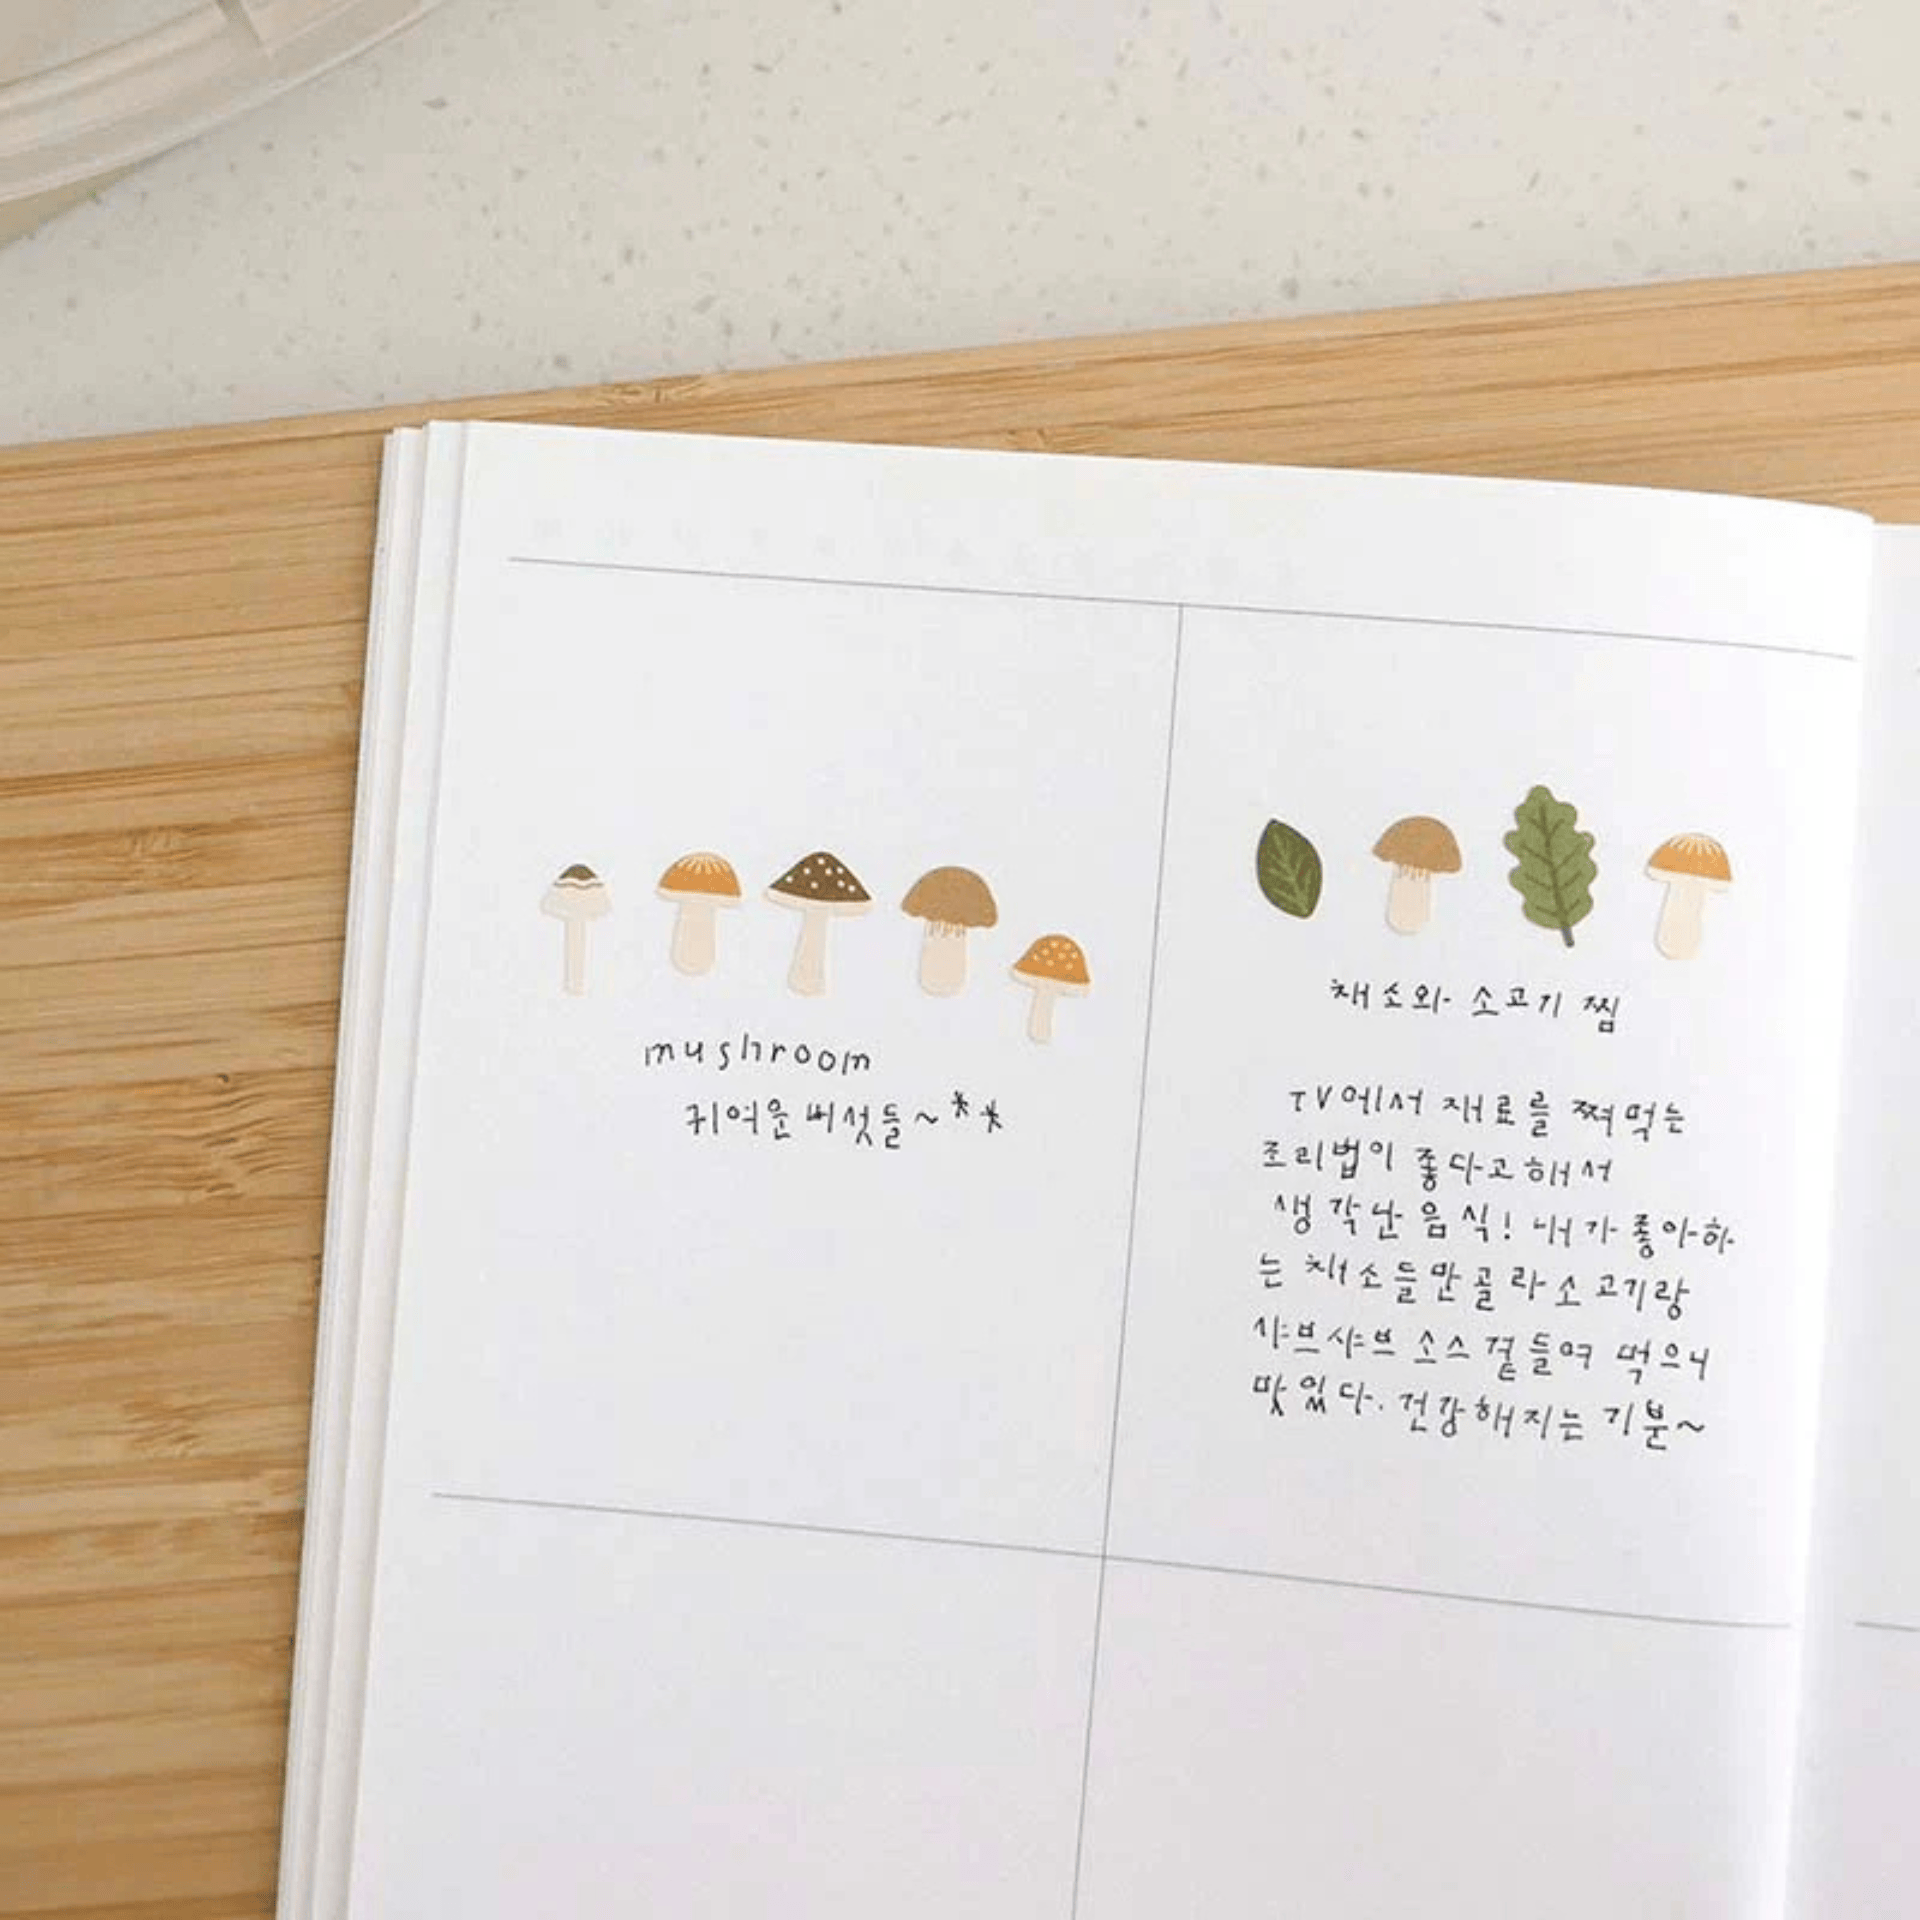 mushroom
귀여운 버섯들~**
채소와 소고기 찜
TV에서 재료를 쪄먹는
조리법이 좋다고해서
생각난 음식! 내가 좋아하
는 채소들만 골라 소고기랑
샤브샤브 소스 곁들여 먹으니
맛있다. 건강해지는 기분~